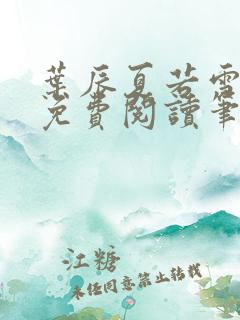 葉辰夏若雪
免費閱讀筆
江糖
未经同意禁止转载